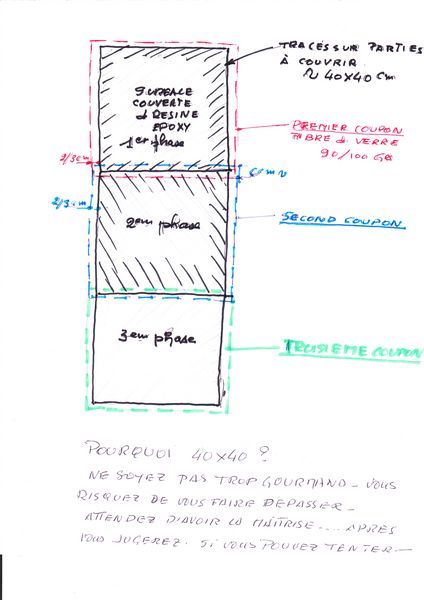 TRACÉS SUR PARTIES
À COUVRIR
~ 40x40 Cm
SURFACE
COUVERTE
d RESINE
EPOXY
1er phase
PREMIER COUPON
FIBRE d VERRE
90/100 GRS
2/3 cm
2/3 cm
2em phase
SECOND COUPON
3em phase
TROISIEME COUPON
POURQUOI 40x40 ?
NE SOYEZ PAS TROP GOURMAND_ VOUS
RISQUEZ DE VOUS FAIRE DEPASSER_
ATTENDEZ D'AVOIR LA MAÎTRISE.... APRES
VOUS JUGEREZ. SI VOUS POUVEZ TENTER_